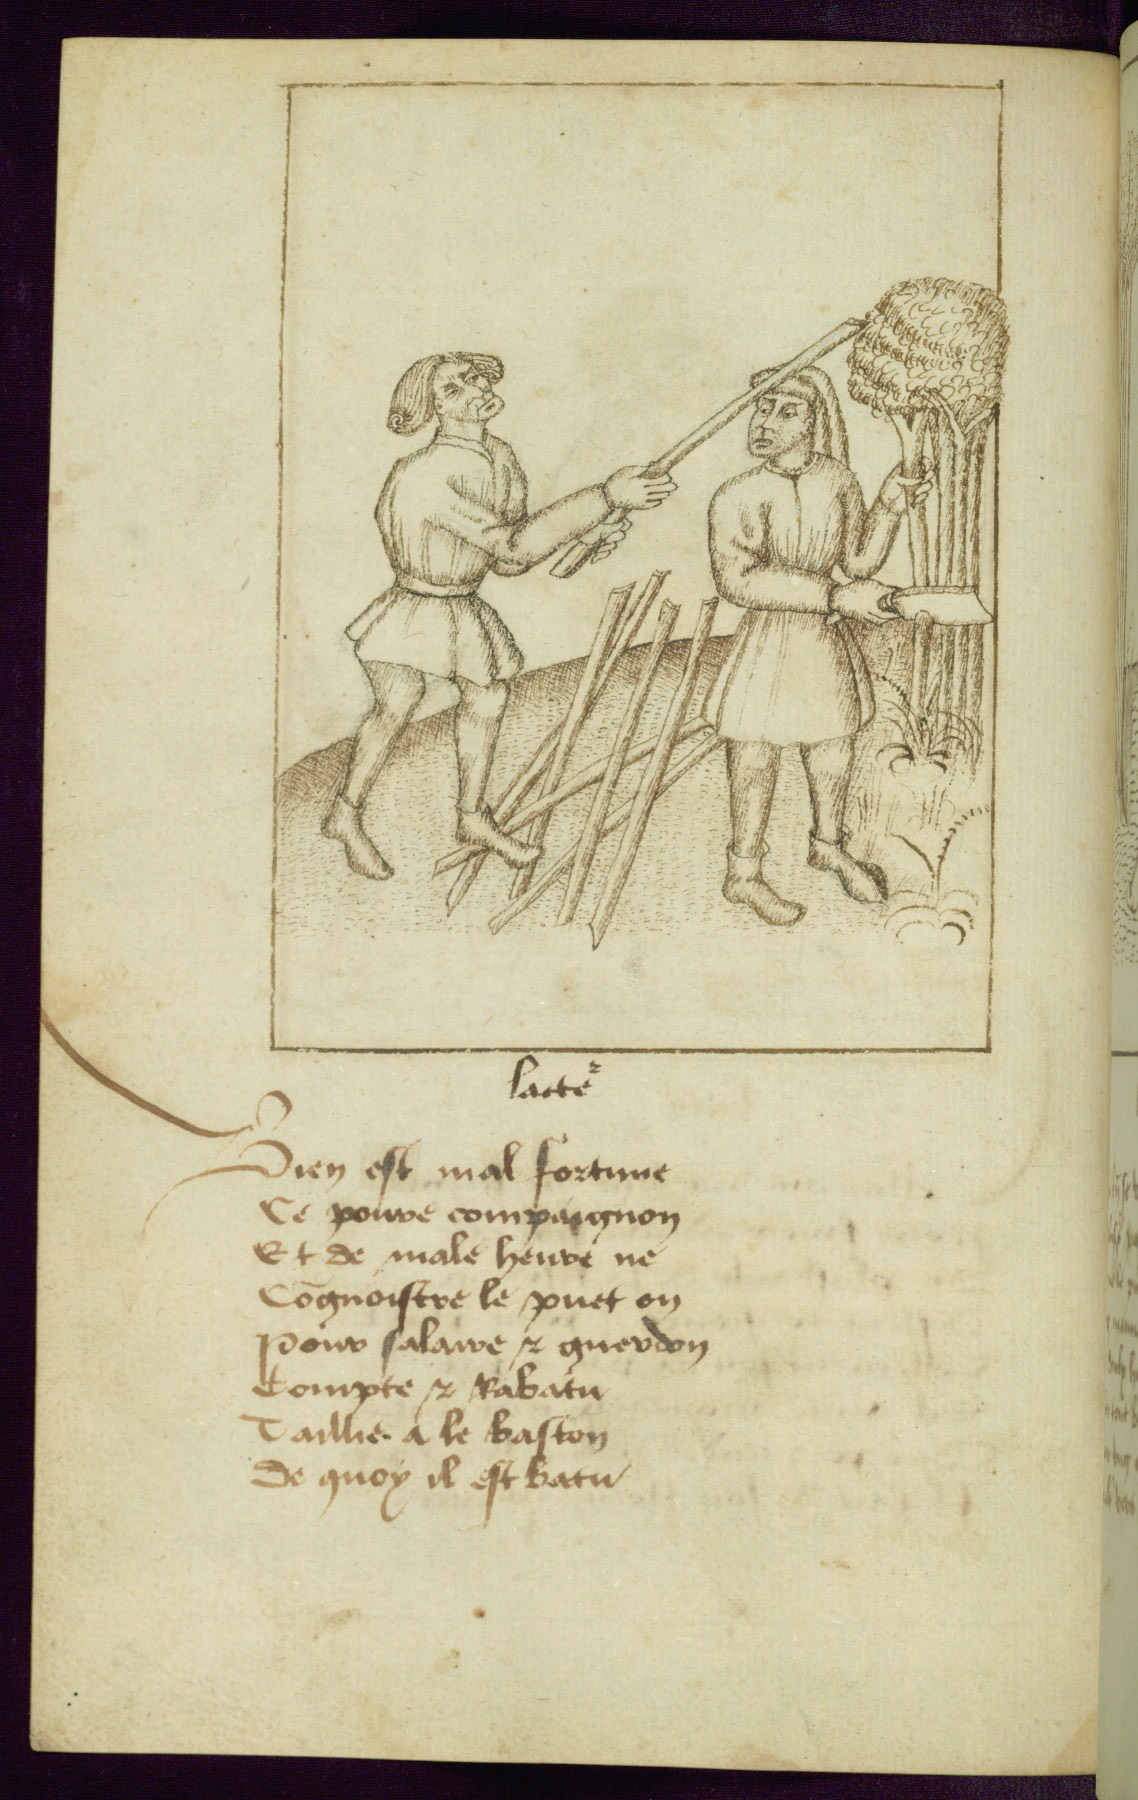 lacteᷣ
Bien est mal fortune
Ce povre compaignon
Et de male heure ne
Cōgnoistre le puet on
Pour salaire ⁊ guerdon
Compte ⁊ Rabatu
Taillie a le baston
De quoy il est batu